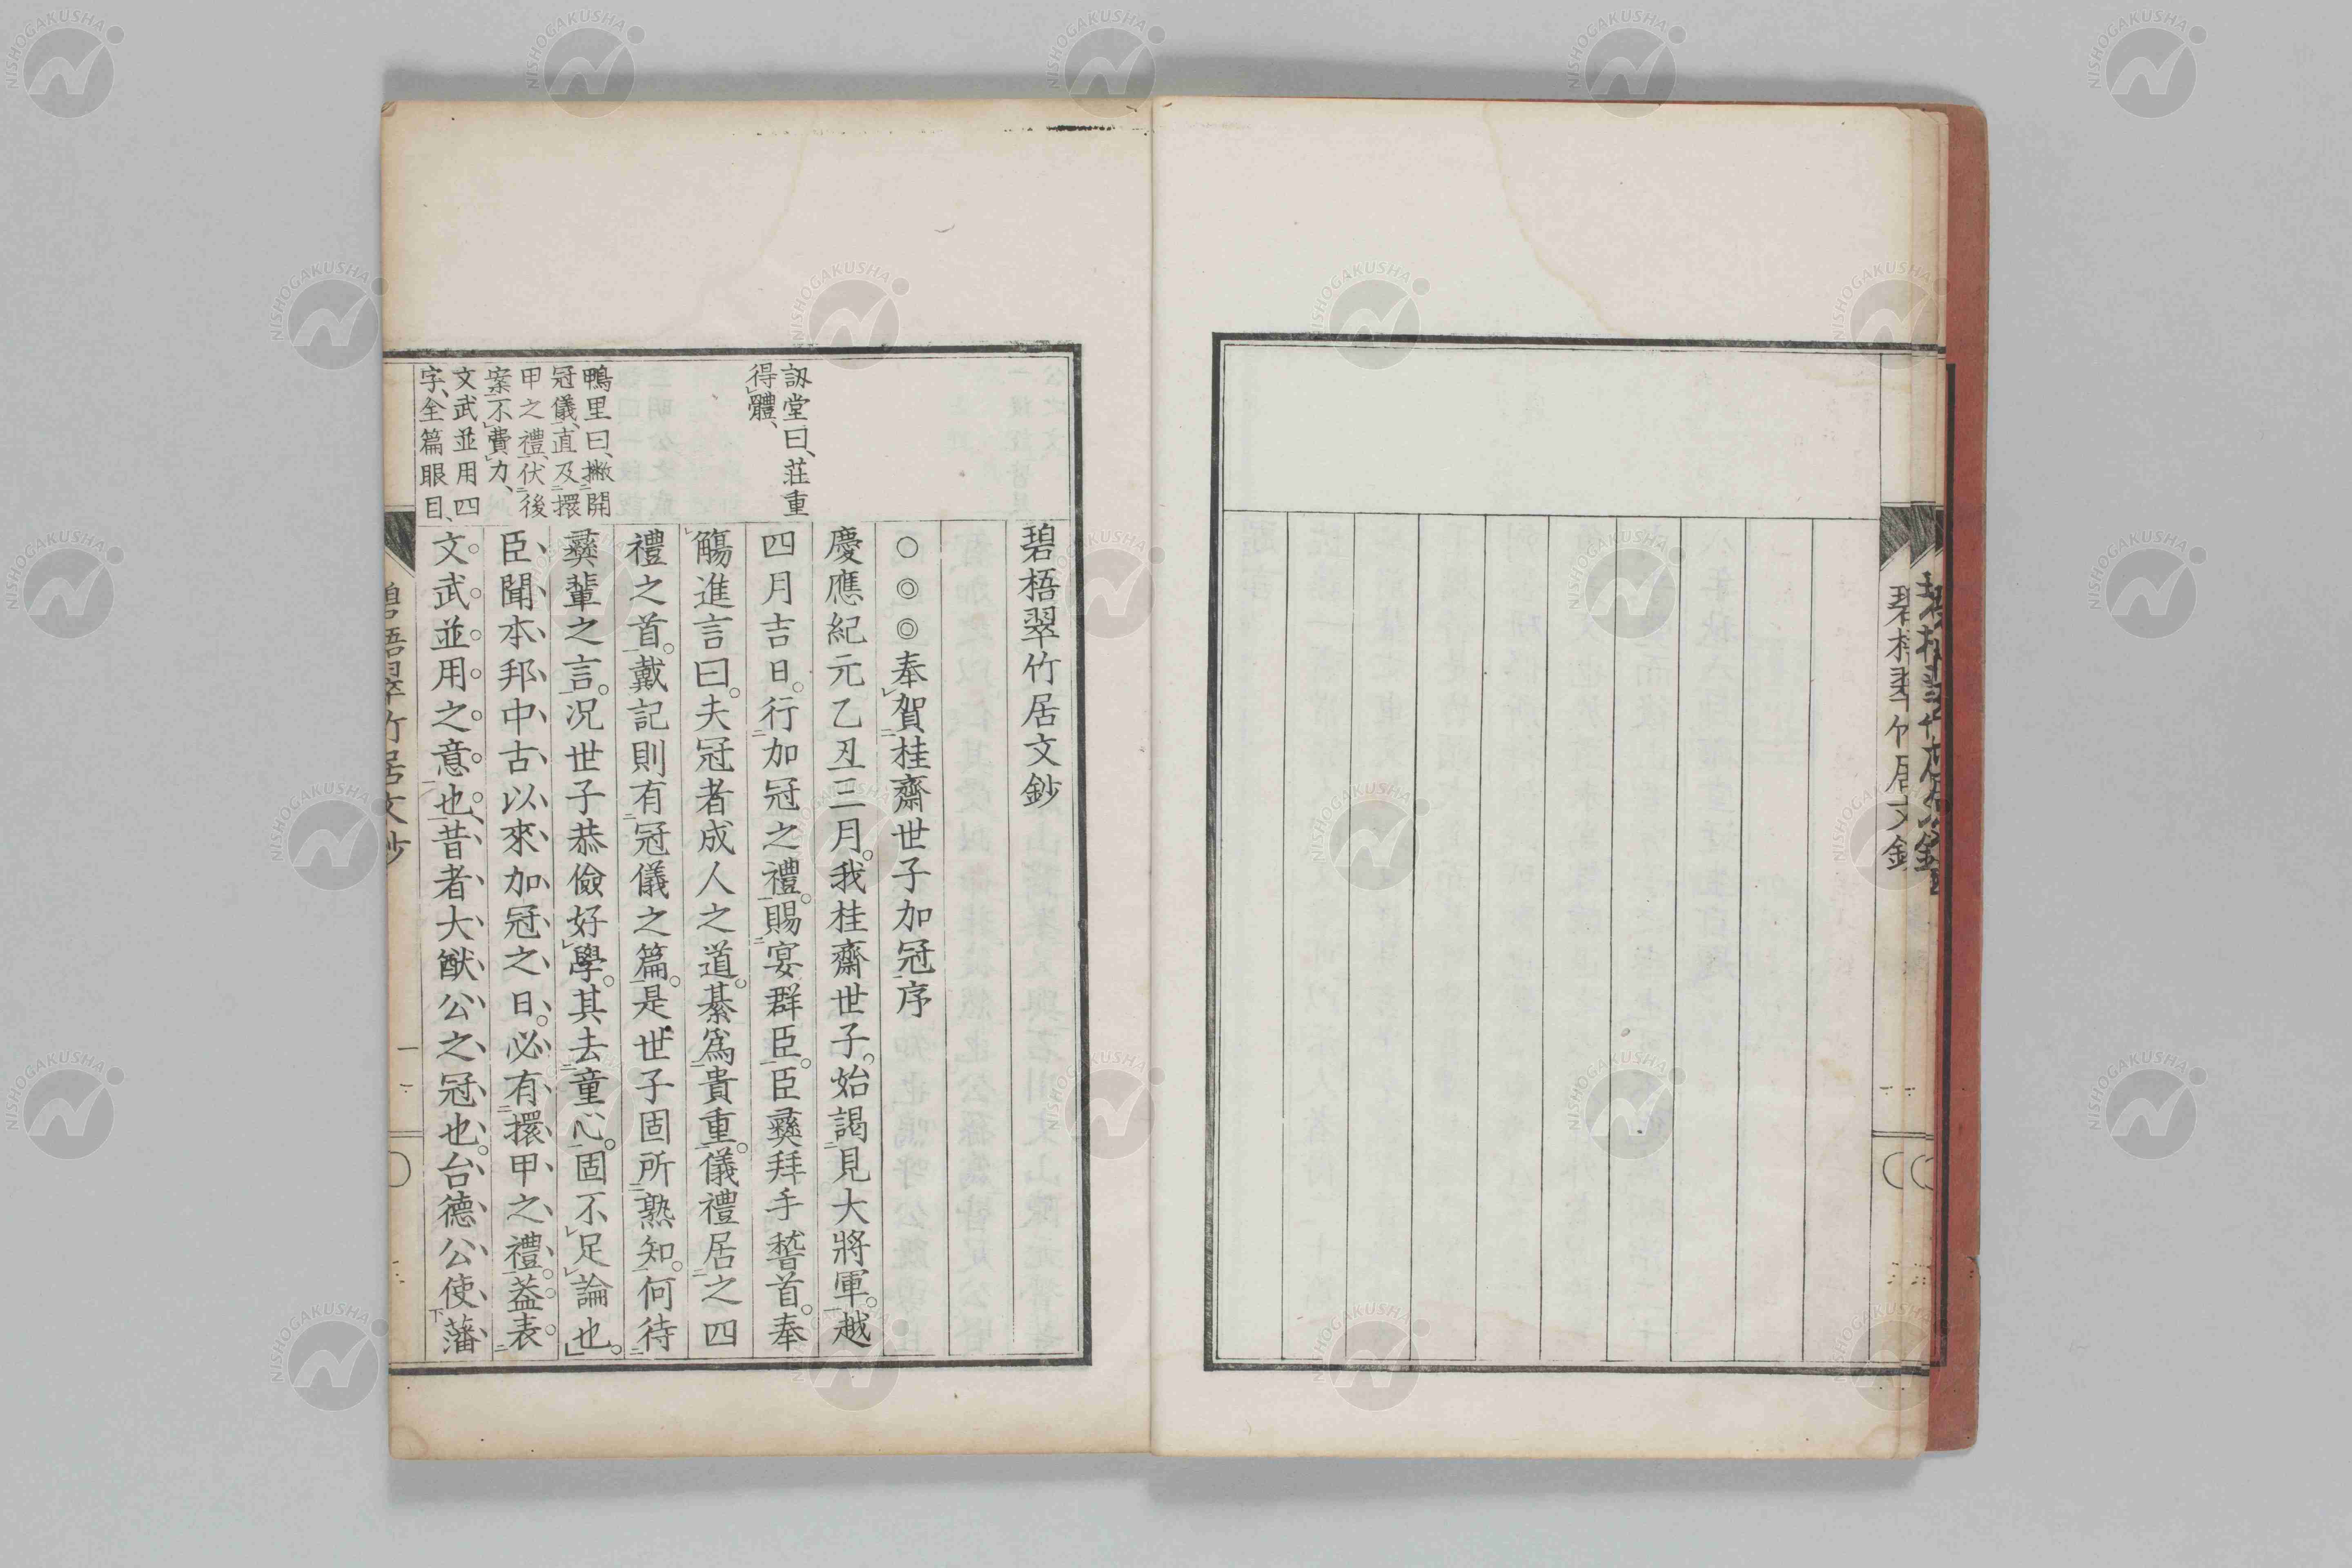 碧梧翠竹居文鈔
○◎◎奉賀桂齋世子加冠序
慶應紀元乙丑三月。我桂齋世子。始謁見大將軍。越
四月吉日。行加冠之禮。賜宴群臣。臣彜拜手稽首。奉
觴進言曰。夫冠者成人之道。綦爲貴重。儀禮居之四
禮之首。戴記則有冠儀之篇。是世子固所熟知。何待
彜輩之言。况世子恭儉好學。其去童心。固不足論也。
臣聞本邦中古以來加冠之日。必有擐甲之禮。葢表
文武並用之意也、昔者大猷公之冠也。台德公使藩
訒堂曰、莊重
得體、
鴨里曰、撇開
冠儀、直及擐
甲之禮、伏後
案不費力、
文武並用四
字、全篇眼目、
碧梧翠竹居文鈔
一
碧梧翠竹居文鈔
NISHOGAKUSHA